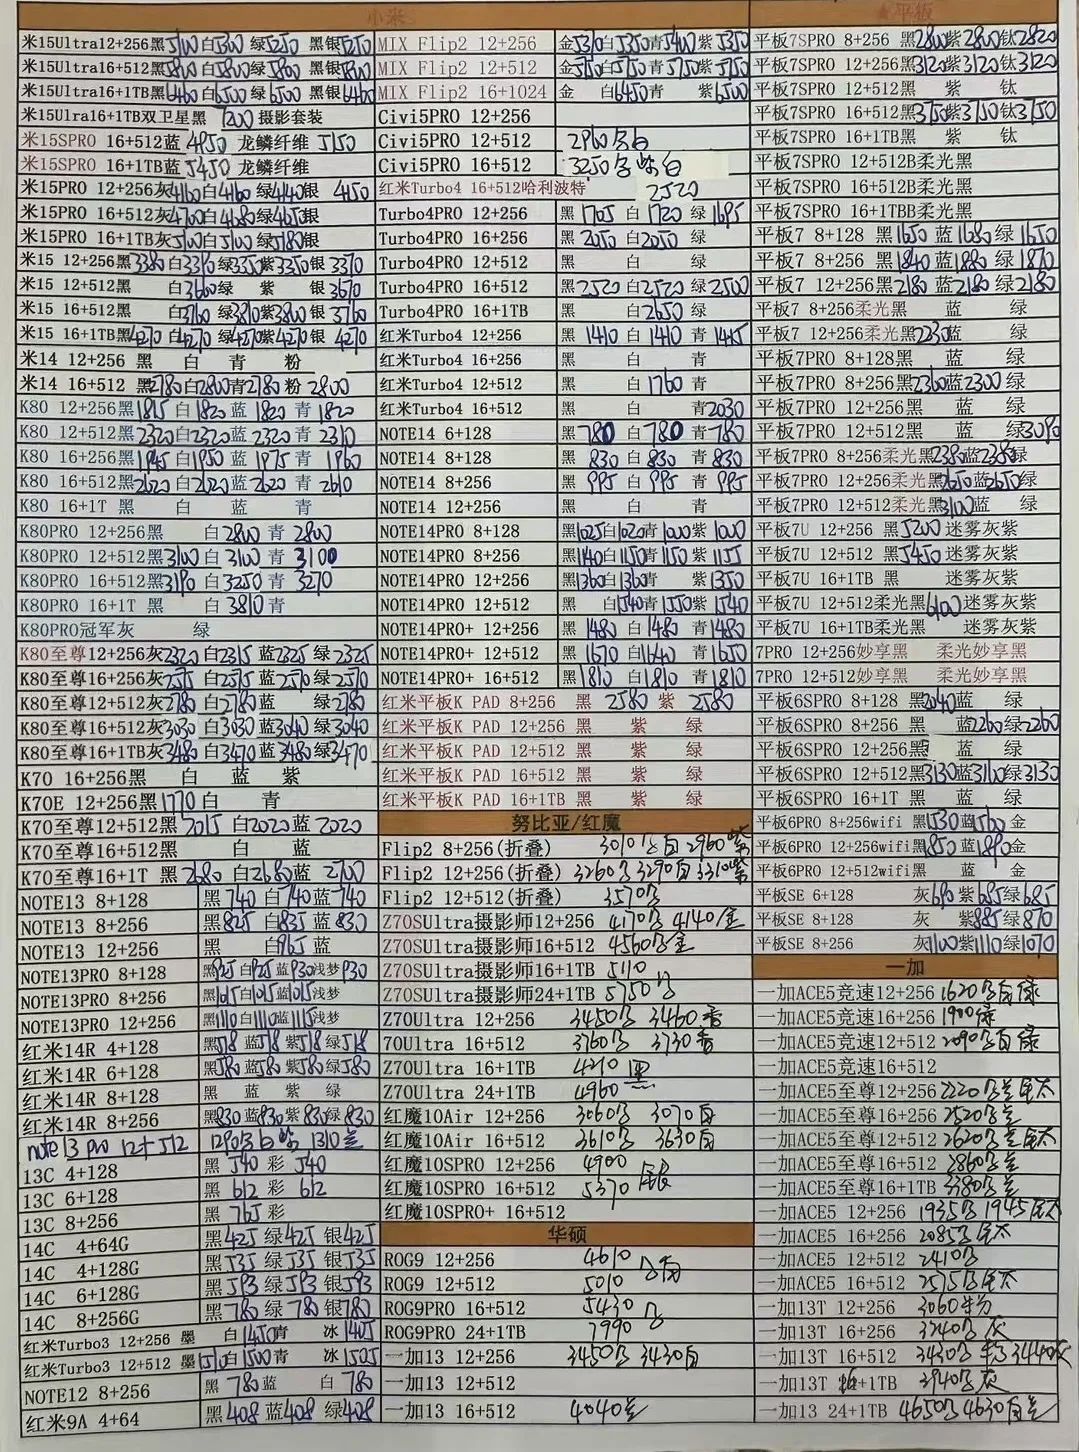 小米
米15Ultra12+256黑5100白5300 绿5250 黑银5250
米15Ultra16+512黑5800白5800绿5800 黑银5800
米15Ultra16+1TB黑6460白6500绿6500 黑银6460
米15Ulra16+1TB双卫星黑 7200 摄影套装
米15SPRO 16+512蓝 4950 龙鳞纤维 5150
米15SPRO 16+1TB蓝 5450 龙鳞纤维
米15PRO 12+256灰4160白4160 绿4140银 4150
米15PRO 16+512灰4700白4680绿4650银
米15PRO 16+1TB灰5100白5100 绿5180银
米15 12+256黑3380 白3390绿3350紫3350银 3370
米15 12+512黑 白3660绿 紫 银3670
米15 16+512黑 白3760 绿3810紫3800 银 3760
米15 16+1TB黑4270 白4270 绿4270紫4270 银 4270
米14 12+256 黑 白 青 粉
米14 16+512 黑2780白2800青2780 粉 2800
K80 12+256黑1815 白1820 蓝 1820 青 1820
K80 12+512黑2320白2320蓝 2320 青 2310
K80 16+256黑1945白1950 蓝 1975 青 1960
K80 16+512黑2620 白2620 蓝 2620 青 2610
K80 16+1T 黑 白 蓝 青
K80PRO 12+256黑 白2800 青 2800
K80PRO 12+512黑3100 白3100 青 3100
K80PRO 16+512黑3190 白3250 青 3270
K80PRO 16+1T 黑 白3810青
K80PRO冠军灰 绿
K80至尊12+256灰2320 白2315 蓝2325 绿2325
K80至尊16+256灰2575 白2515 蓝2570 绿2570
K80至尊12+512灰2780 白2780 蓝 绿2780
K80至尊16+512灰3030 白3030 蓝3040 绿3040
K80至尊16+1TB灰3480 白3470 蓝3480绿3470
K70 16+256黑 白 蓝 紫
K70E 12+256黑1770 白 青
K70至尊12+512黑 2015 白2020蓝 2020
K70至尊16+512黑 白 蓝
K70至尊16+1T 黑 2680 白2680蓝 2700
NOTE13 8+128 黑 740 白 740蓝 740
NOTE13 8+256 黑 825 白 835 蓝 830
NOTE13 12+256 黑 白965 蓝
NOTE13PRO 8+128 黑925 白925 蓝930浅梦 930
NOTE13PRO 8+256 黑1015白1015蓝1015浅梦
NOTE13PRO 12+256 黑1110 白1110蓝1115浅梦
红米14R 4+128 黑518 蓝518 紫518 绿518
红米14R 6+128 黑580 蓝580 紫580 绿580
红米14R 8+128 黑 蓝 紫 绿
红米14R 8+256 黑830 蓝830 紫830 绿830
note 13 pro 12+512
13C 4+128 黑 540 彩 540
13C 6+128 黑 612 彩 612
13C 8+256 黑 765 彩
14C 4+64G 黑425 绿425 银425
14C 4+128G 黑535 绿535 银535
14C 6+128G 黑593 绿593 银593
14C 8+256G 黑780 绿 780 银780
红米Turbo3 12+256 墨 白1450青 冰 1405
红米Turbo3 12+512 墨1510白1500青 冰 1505
NOTE12 8+256 黑 780蓝 白 780
红米9A 4+64 黑408 蓝408 绿408
MIX Flip2 12+256 金5310白5350青5400紫 5350
MIX Flip2 12+512 金5750白5750青 5750紫 5750
MIX Flip2 16+1024 金 白6450青 紫6500
Civi5PRO 12+256
Civi5PRO 12+512 2960
Civi5PRO 16+512 3250
红米Turbo4 16+512哈利波特 2520
Turbo4PRO 12+256 黑 1705 白 1720 绿 1695
Turbo4PRO 16+256 黑 2050 白2050 绿
Turbo4PRO 12+512 黑 白 绿
Turbo4PRO 16+512 黑2520 白2520 绿2500
Turbo4PRO 16+1TB 黑 白2650 绿
红米Turbo4 12+256 黑 1410 白 1410 青 1415
红米Turbo4 16+256 黑 白 青
红米Turbo4 12+512 黑 白1760 青
红米Turbo4 16+512 黑 白 青2030
NOTE14 6+128 黑 780 白 780 青780
NOTE14 8+128 黑 830 白 830 青 830
NOTE14 8+256 黑 995 白 995 青 995
NOTE14 12+256 黑 白 青
NOTE14PRO 8+128 黑1025白1020青 1000紫 1000
NOTE14PRO 8+256 黑1140白1150青 1150 紫 1155
NOTE14PRO 12+256 黑1360白1360青 紫 1350
NOTE14PRO 12+512 黑 白1540青 1550紫 1540
NOTE14PRO+ 12+256 黑 1480 白 1480 青1480
NOTE14PRO+ 12+512 黑 1670 白1640 青1650
NOTE14PRO+ 16+512 黑 1810 白1810 青1810
红米平板K PAD 8+256 黑 2580 紫 2580
红米平板K PAD 12+256 黑 紫 绿
红米平板K PAD 12+512 黑 紫 绿
红米平板K PAD 16+512 黑 紫 绿
红米平板K PAD 16+1TB 黑 紫 绿
努比亚/红魔
Flip2 8+256(折叠) 3010 白 2960 紫
Flip2 12+256(折叠) 3260 3290白 3310紫
Flip2 12+512(折叠) 3570
Z70SUltra摄影师12+256 4170 4140
Z70SUltra摄影师16+512 4560
Z70SUltra摄影师16+1TB 5110
Z70SUltra摄影师24+1TB 5750
Z70Ultra 12+256 3450 3460
70Ultra 16+512 3760 3730
Z70Ultra 16+1TB 4210 黑
Z70Ultra 24+1TB 4960
红魔10Air 12+256 3060 3070白
红魔10Air 16+512 3610 3630白
红魔10SPRO 12+256 4900
红魔10SPRO 16+512 5370 银
红魔10SPRO+ 16+512
华硕
ROG9 12+256 4610
ROG9 12+512 5010
ROG9PRO 16+512 5430
ROG9PRO 24+1TB 7990
一加13 12+256 3450 3430白
一加13 12+512
一加13 16+512 4040
★平板
平板7SPRO 8+256 黑2800紫2800钛2820
平板7SPRO 12+256黑3120紫3120钛3120
平板7SPRO 12+512黑 紫 钛
平板7SPRO 16+512黑3750紫3750钛3750
平板7SPRO 16+1TB黑 紫 钛
平板7SPRO 12+512B柔光黑
平板7SPRO 16+512B柔光黑
平板7SPRO 16+1TBB柔光黑
平板7 8+128 黑1650 蓝1680 绿 1650
平板7 8+256 黑1840 蓝1880 绿 1870
平板7 12+256黑2180 蓝2180 绿2180
平板7 8+256柔光黑 蓝 绿
平板7 12+256柔光黑2230蓝 绿
平板7PRO 8+128黑 蓝 绿
平板7PRO 8+256黑2360蓝2300 绿
平板7PRO 12+256黑 蓝 绿
平板7PRO 12+512黑 蓝 绿3090
平板7PRO 8+256柔光黑2380蓝2385绿
平板7PRO 12+256柔光黑2650蓝2650绿
平板7PRO 12+512柔光黑3100蓝 绿
平板7U 12+256 黑 5200 迷雾灰紫
平板7U 12+512 黑5450迷雾灰紫
平板7U 16+1TB 黑 迷雾灰紫
平板7U 12+512柔光黑6100迷雾灰紫
平板7U 16+1TB柔光黑 迷雾灰紫
7PRO 12+256妙享黑 柔光妙享黑
7PRO 12+512妙享黑 柔光妙享黑
平板6SPRO 8+128 黑2040蓝 绿
平板6SPRO 8+256 黑 蓝2260绿2260
平板6SPRO 12+256黑 蓝 绿
平板6SPRO 12+512黑3130蓝3110绿3130
平板6SPRO 16+1T 黑 蓝 绿
平板6PRO 8+256wifi 黑1530蓝1560 金
平板6PRO 12+256wifi黑1850 蓝1890金
平板6PRO 12+512wifi黑 蓝 金
平板SE 6+128 灰690 紫685绿685
平板SE 8+128 灰 紫885绿870
平板SE 8+256 灰1100紫1110绿1070
一加
一加ACE5竞速12+256 1620 白 绿
一加ACE5竞速16+256 1900 绿
一加ACE5竞速12+512 2090 白绿
一加ACE5竞速16+512
一加ACE5至尊12+256 2220
一加ACE5至尊16+256 2520
一加ACE5至尊12+512 2620
一加ACE5至尊16+512 2860
一加ACE5至尊16+1TB 3380
一加ACE5 12+256 1935 1945
一加ACE5 16+256 2085
一加ACE5 12+512 2410
一加ACE5 16+512 2575
一加13T 12+256 3060 粉
一加13T 16+256 3240 灰
一加13T 16+512 3430 3440灰
一加13T 16+1TB 3940 灰
一加13 24+1TB 4650 4630白